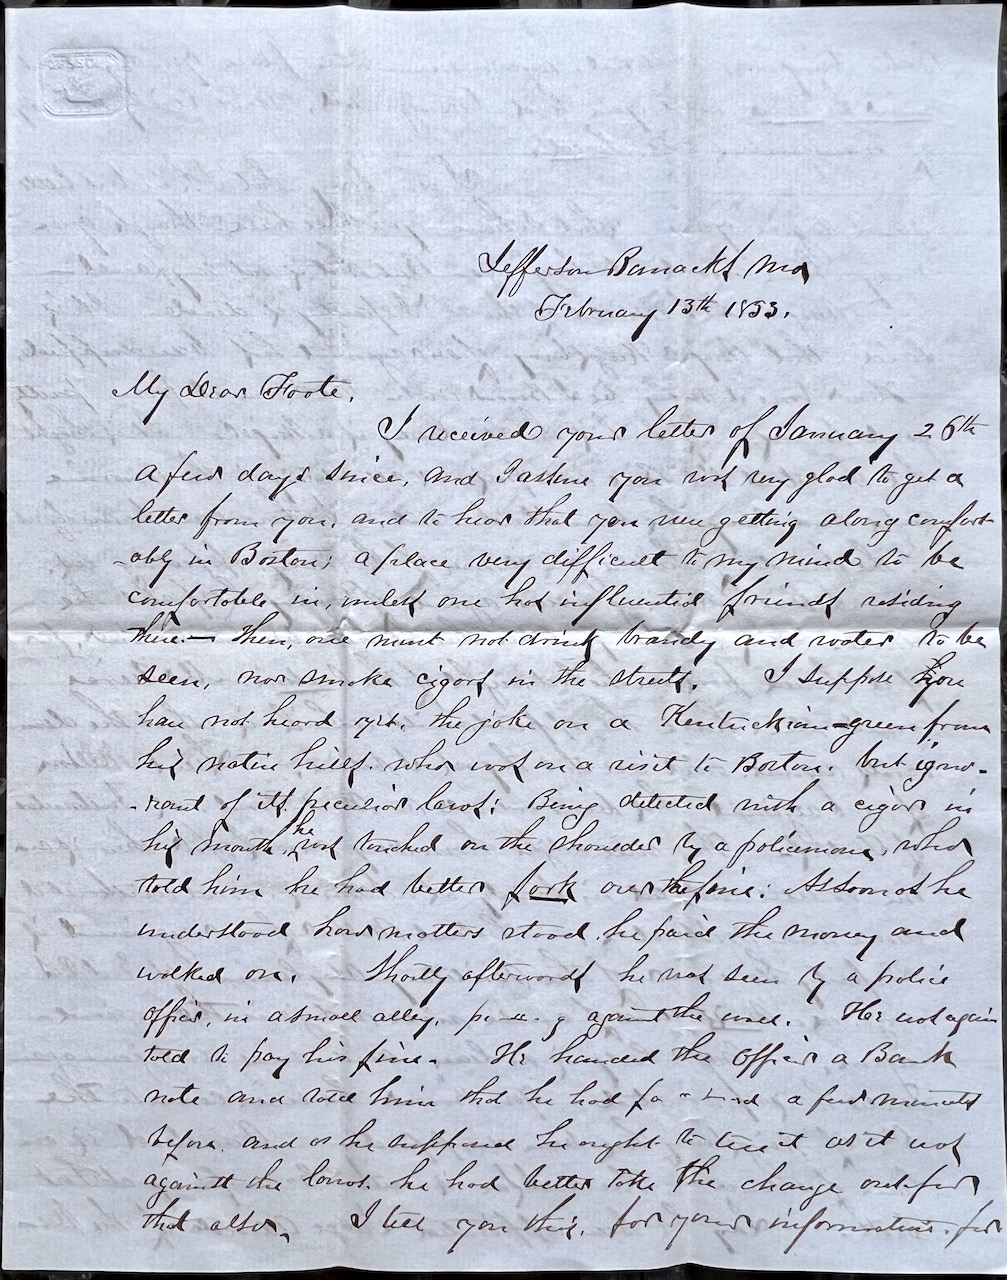 Jefferson Barracks Mo
February 13th 1853.
My Dear Foote,
I received your letter of January 26th
a few days since, and I assure you was very glad to get a
letter from you, and to hear that you were getting along comfort-
-ably in Boston; a place very difficult to my mind to be
comfortable in, unless one has influential friends residing
there— Then, one must not drink brandy and water to be
seen, nor smoke cigars in the streets. I suppose you
have not heard yet, the joke on a Kentuckian—green from
his native hills, who was on a visit to Boston, but igno-
-rant of its peculiar laws; Being detected with a cigar in
his mouth, he was touched on the shoulder by a policeman, who
told him he had better fork over the fine: As soon as he
understood how matters stood, he paid the money and
walked on. Shortly afterwards he was seen by a police
officer, in a small alley, p-- -- g against the wall. He was again
told to pay his fine. He handed the officer a Bank
note and told him that he had fa - t - d a few minutes
before, and as he supposed he ought to it as it was
against the laws, he had better take the change out for
that also. I tell you this, for your information, for